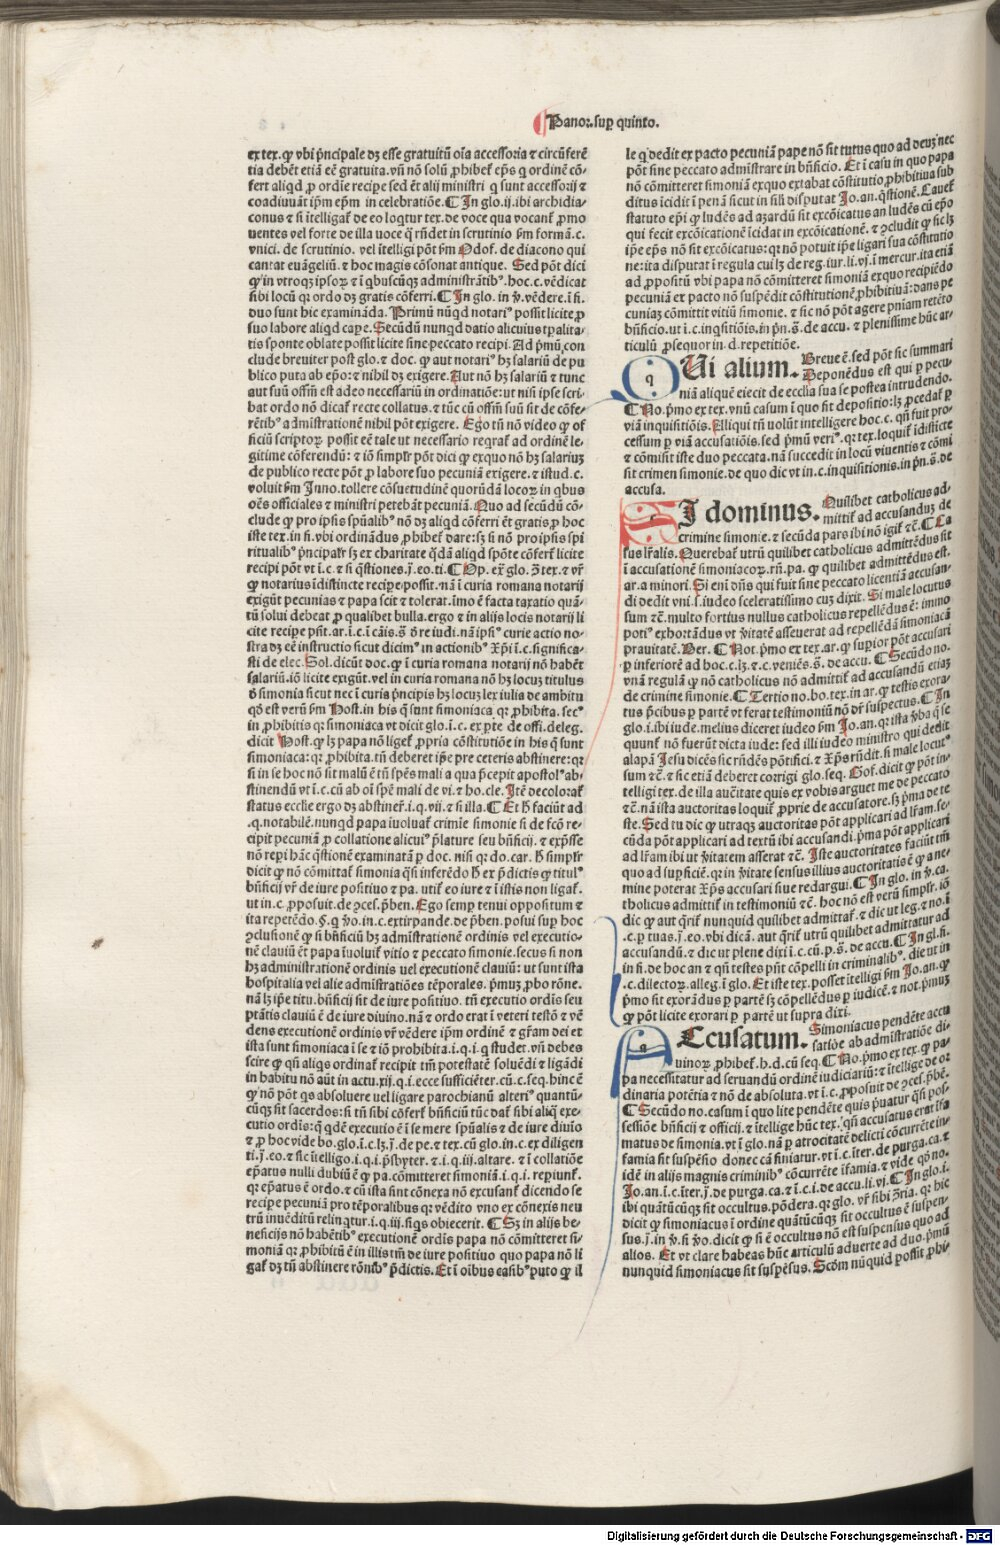 Panor. sup̱ quinto.
ex tex. ꝙ vbi pͥncipale dꝫ esse gratuitū oīa accessoria ⁊ circūferē
tia debēt etiā eē gratuita. vn̄ nō solū ꝓhibet͛ ep̄s ꝗ ordinē cō-
fert aliqd̄ ꝓ ordīe recipe sed ēt alij ministri ꝗ sunt accessorij ⁊
coadiuuāt ip̄m ep̄m in celebratiōe. ¶ In glo. ij. ibi archidia-
conus ⁊ si ītelligat͛ de eo loqtur tex. de voce qua vocant͛ ꝓmo
uentes vel forte de illa voce ꝗ̄ rn̄det in scrutinio ẜm formā. c.
vnici. de scrutinio. vel ītelligi pōt ẜm Odof. de diacono qui
cantat euāgeliū. ⁊ hoc magis cōsonat antique. Sed pōt dici
ꝙ in vtroqꝫ ipsoꝝ ⁊ ī qbuscūqꝫ administrātibꝰ. hoc. c. vēdicat
sibi locū qꝛ ordo dꝫ gratis cōferri. ¶ In glo. in ꝟ. vēdere. ī fi.
duo sunt hic examināda. Primū nūqd notariꝰ possit licite ꝓ
suo labore aliqd cape. Secūdū nunqd datio alicuius tpalita-
tis sponte oblate possit licite sine peccato recipi. Ad pͥmū, con
clude breuiter post glo. ⁊ doc. ꝙ aut notariꝰ hꝫ salariū de pu
blico puta ab ep̄o: ⁊ nihil dꝫ exigere. Aut nō hꝫ salariū ⁊ tunc
aut suū offm̄ est adeo necessariū in ordinatiōe: ut nisi ipse scri-
bat ordo nō dicat͛ recte collatus. ⁊ tūc cū offm̄ suū sit de cōfe-
rētibꝰ admīstrationē nihil pōt exigere. Ego tn̄ nō video ꝙ of
ficiū scriptoꝝ possit eē tale ut necessario reqrat͛ ad ordinē le-
gitime cōferendū: ⁊ iō simplr̄ pōt dici ꝙ exquo nō hꝫ salariuꝫ
de publico recte pōt ꝓ labore suo pecuniā exigere. ⁊ istud. c.
voluit ẜm Inno. tollere cōsuetudinē quorūdā locoꝝ in qbus
oēs officiales ⁊ ministri petebāt pecuniā. Quo ad secūdū cō-
clude ꝙ pro ipsis spūalibꝰ nō dꝫ aliqd cōferri ēt gratis, ꝓ hoc
iste tex. in fi. vbi ordināduṣ ꝓhibet͛ dare: sꝫ si nō pro ipsis spi
ritualibꝰ pͥncipalr̄ sꝫ ex charitate q̄dā aliqd spōte cōfert͛ licite
recipi pōt vt ī. c. ⁊ si q̄stiones. j. eo. ti. ¶ Op. ex glo. ꝯ tex. ⁊ vr̄
ꝙ notarius īdistincte recipe possit. nā ī curia romana notarij
exigūt pecunias ⁊ papa scit ⁊ tolerat. imo ē facta taxatio quā-
tū solui debeat ꝓ qualibet bulla. ergo ⁊ in alijs locis notarij li
cite recipe pn̄t. ar. ī. c. ī cāis. s̄. d̄ re iudi. nā ipsiꝰ curie actio no-
stra dꝫ eē instructio sicut dicimꝰ in actionibꝰ Xp̄i ī. c. significa-
sti de elec. Sol. dicūt doc. ꝙ ī curia romana notarij nō habēt
salariū. iō licite exigūt. vel in curia romana nō hꝫ locuꝫ titulus
d̄ simonia sicut nec ī curia pͥncipis hꝫ locuꝫ lex iulia de ambitu
qd̄ est verū ẜm Host. in his ꝗ̄ sunt simoniaca qꝛ ꝓhibita. secꝰ
in ꝓhibitis qꝛ simoniaca vt dicit glo. ī. c. ex pte de offi. deleg.
dicit Host. ꝙ lꝫ papa nō liget͛ ꝓpria cōstitutiōe in his ꝗ̄ sunt
simoniaca: qꝛ ꝓhibita. tn̄ deberet ip̄e pre ceteris abstinere: qꝛ
si in se hoc nō sit malū ē tn̄ spēs mali a qua p̄cepit apostolꝰ ab-
stinendū vt ī. c. cū ab oī spē mali de vi. ⁊ ho. cle. Itē decolorat͛
status ecclie ergo dꝫ abstiner͛ i. q. vij. ⁊ si illa. ¶ Et h̄ faciūt ad
. q. notabilē. nunqd papa īuoluat͛ crimīe simonie si de fcō re-
cipit pecuniā ꝓ collatione alicuiꝰ p̄lature seu bn̄ficij. ⁊ exp̄sse
nō reꝑi hāc q̄stionē examinatā ꝑ doc. nisi qꝛ do. car. h̄ simplr̄
dicit ꝙ nō cōmittat͛ simoniā q̄si inferēdo h̄ ex p̄dictis ꝙ titulꝰ
bn̄ficij vr̄ de iure positiuo ⁊ pa. utit͛ eo iure ⁊ ī istis non ligat͛.
ut in. c. ꝓposuit. de ꝯces. p̄ben. Ego semꝑ tenui oppositum ⁊
ita repetēdo. §. q. ꝟo. in. c. extirpande. de p̄ben. posui suꝑ hoc
ꝯclusionē ꝙ si bn̄ficiū hꝫ admīstrationē ordinis vel executio-
nē clauiū ēt papa īuoluit͛ vitio ⁊ peccato simonie. secus si non
hꝫ administrationē ordinis uel executionē clauiū: ut sunt ista
hospitalia vel alie admistratiōes tēporales. pͥmuꝫ ꝓbo rōne.
nā lꝫ ip̄e titu. bn̄ficij sit de iure positiuo. tn̄ executio ordīs seu
ptātis clauiū ē de iure diuino. nā ⁊ ordo erat ī veteri testō ⁊ vē
dens executionē ordinis vr̄ vēdere ip̄m ordinē ⁊ gr̄am dei et
ista sunt simoniaca ī se ⁊ iō prohibita. i. q. i. q studet. vn̄ debes
scire ꝙ qn̄ aliqs ordinat͛ recipit tm̄ potestatē soluēdi ⁊ ligādi
in habitu nō aūt in actu. xij. q. i. ecce sufficiēter. cū. c. seq. hinc ē
ꝙ nō pōt qs absoluere uel ligare parochianū alteriꝰ quantū-
cūqꝫ sit sacerdos: si tn̄ sibi cōfert͛ bn̄ficiū tūc dat͛ sibi aliq̄ exe-
cutio ordīs: q̄ qdē executio ē ī se mere spūalis ⁊ de iure diuīo
⁊ ꝓ hoc vide bo. glo. ī. c. lꝫ. j. de pe. ⁊ tex. cū glo. in. c. ex diligen
ti. j. eo. ⁊ sic ītelligo. i. q. i. p̄sbyter. ⁊. i. q. iij. altare. ⁊ ī collatiōe
ep̄atus nulli dubiū ē ꝙ pa. cōmitteret simoniā. i. q. i. repiunt͛.
qꝛ ep̄atus ē ordo. ⁊ cū ista sint cōnexa nō excusant͛ dicendo se
recipe pecuniā pro tēporalibus qꝛ vēdito vno ex cōnexis neu
trū inuēditū relinqtur. i. q. iij. siqs obiecerit. ¶ Sꝫ in alijs be-
neficijs nō habētibꝰ executionē ordīs papa nō cōmitteret si-
moniā qꝛ ꝓhibitū ē in illis tm̄ de iure positiuo quo papa nō li
gat͛ dꝫ tn̄ abstinere rōnibꝰ p̄dictis. Et ī oībus casibꝰ puto ꝙ il
le q̓ dedit ex pacto pecuniā pape nō sit tutus quo ad deuꝫ nec
pōt sine peccato admīstrare in bn̄ficio. Et ī casu in quo papa
nō cōmitteret simoniā exquo extabat cōstitutio ꝓhibitiua sub
ditus īcidit ī penā sicut in sili disputat Jo. an. q̄stionē. Cauet͛
statuto ep̄i ꝙ ludēs ad azardū sit excōicatus an ludēs cū ep̄o
qui fecit excōicationē īcidat in excōicationē. ⁊ ꝯcludit ꝙ sic lꝫ
ip̄e ep̄s nō sit excōicatus: qꝛ nō potuit ip̄e ligari sua cōstitutio
ne: ita disputat ī regula cui lꝫ de reg. iur. li. vj. ī mercur. ita etiā
ad ꝓpositū vbi papa nō cōmitteret simoniā exquo recipiēdo
pecuniā ex pacto nō suspēdit cōstitutionē ꝓhibitiuā: dans pe
cuniaꝫ cōmittit vitiū simonie. ⁊ sic nō pōt agere pniam retēto
bn̄ficio. ut ī. c. inqsitiōis. in pn̄. s̄. de accu. ⁊ plenissime hūc ar-
ticulū ꝓsequor in. d. repetitiōe.
QUi alium. Breue ē. sed pōt sic summari
Deponēdus est qui ꝑ pecu-
niā aliquē eiecit de ecclīa sua se postea intrudendo.
¶ No. pͥmo ex tex. vnū casum ī quo fit depositio: lꝫ ꝓcedat͛ ꝑ
viā inquisitiōis. Alliqui tn̄ uolūt intelligere hoc. c. qn̄ fuit pro-
cessum ꝑ viā accusatiōis. sed pͥmū veriꝰ. qꝛ tex. loquit͛ īdisticte
⁊ cōmisit iste duo peccata. nā succedit in locū viuentis ⁊ cōmi
sit crimen simonie. de quo dic vt in. c. inquisitionis. in pn̄. s̄. de
accusa.
SI dominus. Quilibet catholicus ad-
mittit͛ ad accusanduꝫ de
crimine simonie. ⁊ secūda pars ibi nō igit͛ ⁊c̄. ¶ Ca
sus lr̄alis. Querebat͛ utrū quilibet catholicus admittēdus sit
ī accusationē simoniacoꝝ. rn̄. pa. ꝙ quilibet admittēdus est.
ar. a minori. Si eni dn̄s qui fuit sine peccato licentiā accusan-
di dedit vni. s. iudeo sceleratissimo cuꝫ dixit. Si male locutus
sum ⁊c̄. multo fortius nullus catholicus repellēdus ē: immo
potiꝰ exhortādus vt ꝟitatē asseuerat ad repellēdā simoniacā
prauitatē. Ber. ¶ Not. pͥmo ex tex. ar. ꝙ supior pōt accusari
ꝑ inferiorē ad hoc. c. lꝫ. ⁊. c. veniēs. s̄. de accu. ¶ Secūdo no.
vnā regulā ꝙ nō catholicus nō admittit͛ ad accusandū etiaꝫ
de crimine simonie. ¶ Tertio no. bo. tex. in ar. ꝙ testis exora-
tus p̄cibus ꝑ partē vt ferat testimoniū nō dr̄ suspectus. ¶ In
glo. i. ibi iude. melius diceret iudeo ẜm Jo. an. qꝛ ista ꝟba q̄ se
quunt͛ nō fuerūt dicta iude: sed illi iudeo ministro qui dedit
alapā Jesu dicēs sic rn̄des pōtifici. ⁊ Xp̄s rn̄dit. si male locutꝰ
sum ⁊c̄. ⁊ sic etiā deberet corrigi glo. seq. Gof. dicit ꝙ pōt in-
telligi tex. de illa auc̄itate quis ex vobis arguet me de peccato
⁊c̄. nā ista auctoritas loquit͛ ꝓprie de accusatore. sꝫ pͥma de te
ste. Sed tu dic ꝙ utraqꝫ auctoritas pōt applicari ad lr̄am. se-
cūda pōt applicari ad textū ibi accusandi. pͥma pōt applicari
ad lr̄am ibi ut ꝟitatem asserat ⁊c̄. Iste auctoritates faciūt tm̄
quo ad supficiē. qꝛ in ꝟitate sensus illius auctoritatis ē ꝙ a ne-
mine poterat Xp̄s accusari siue redargui. ¶ In glo. in ꝟ. ca-
tholicus admittit͛ in testimoniū ⁊c̄. hoc nō est verū simplr̄. iō
dic ꝙ aut q̄rit͛ nunquid quilibet admittat͛. ⁊ dic ut leg. ⁊ no. ī
. c. ꝑ tuas. j. eo. vbi dicā. aut q̄rit͛ utrū quilibet admittatur ad
accusandū. ⁊ dic ut plene dixi ī. c. cū. p. s̄. de accu. ¶ In gl. fi.
in fi. de hoc an ⁊ qn̄ testes pn̄t cōpelli in criminalibꝰ. dic ut in
. c. dilectoꝝ. alleg. ī glo. Et iste tex. posset ītelligi ẜm Jo. an. ꝙ
pͥmo sit exorādus ꝑ partē sꝫ cōpellēdus ꝑ iudicē. ⁊ not. pͥmuꝫ
ꝙ pōt licite exorari ꝑ partē ut supra dixi.
ACcusatum. Simoniacus pendēte accu
satiōe ab admīstratiōe di-
uinoꝝ ꝓhibet͛. h. d. cū seq. ¶ No. pͥmo ex tex. ꝙ pa-
pa necessitatur ad seruandū ordinē iudiciariū: ⁊ ītellige de or
dinaria potētia ⁊ nō de absoluta. vt ī. c. ꝓposuit de ꝯces. p̄bē.
¶ Secūdo no. casum ī quo lite pendēte quis p̄uatur q̄si pos-
sessiōe bn̄ficij ⁊ officij. ⁊ ītellige hūc tex. qn̄ accusatus erat īfa
matus de simonia. vt ī glo. nā ꝑ atrocitatē delicti cōcurrēte in-
famia fit suspēsio donec cā finiatur. vt ī. c. īter. de purga. ca. ⁊
idē in alijs magnis criminibꝰ cōcurrēte īfamia. ⁊ vide qd̄ no.
Jo. an. ī. c. īter. j. de purga. ca. ⁊ ī. c. i. de accu. li. vj. ¶ In glo. i.
ibi quātūcūqꝫ sit occultus. pōdera. qꝛ glo. vr̄ sibi ꝯria. qꝛ hic
dicit ꝙ simoniacus ī ordine quātūcūqꝫ sit occultus ē suspen-
sus. j. in ꝟ. si ꝟo. dicit ꝙ si ē occultus nō est suspensus quo ad
alios. Et vt clare habeas hūc articulū aduerte ad duo. pͥmū
nunquid simoniacus sit suspēsus. Scd̄m nūquid possit ꝓhi-
Digitalisierung gefördert durch die Deutsche Forschungsgemeinschaft - DFG